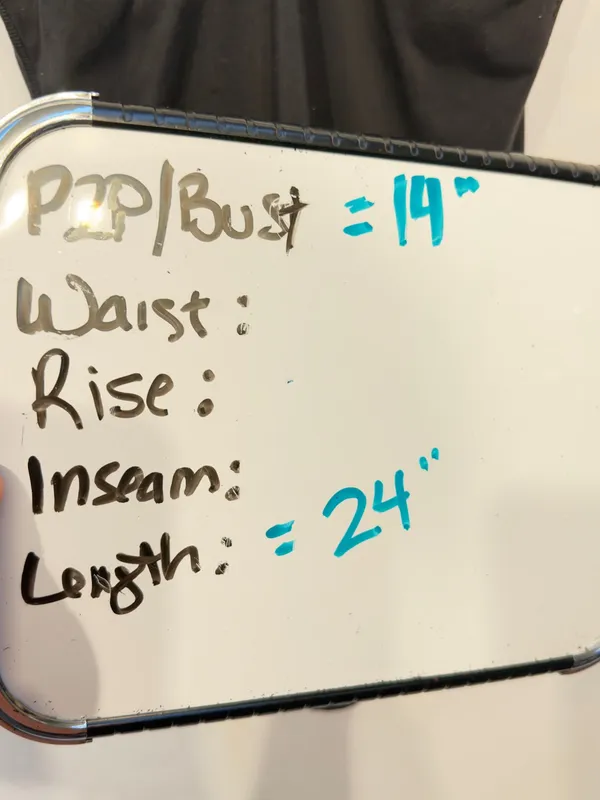 P2P/Bust = 14"
Waist:
Rise:
Inseam:
Length: = 24"